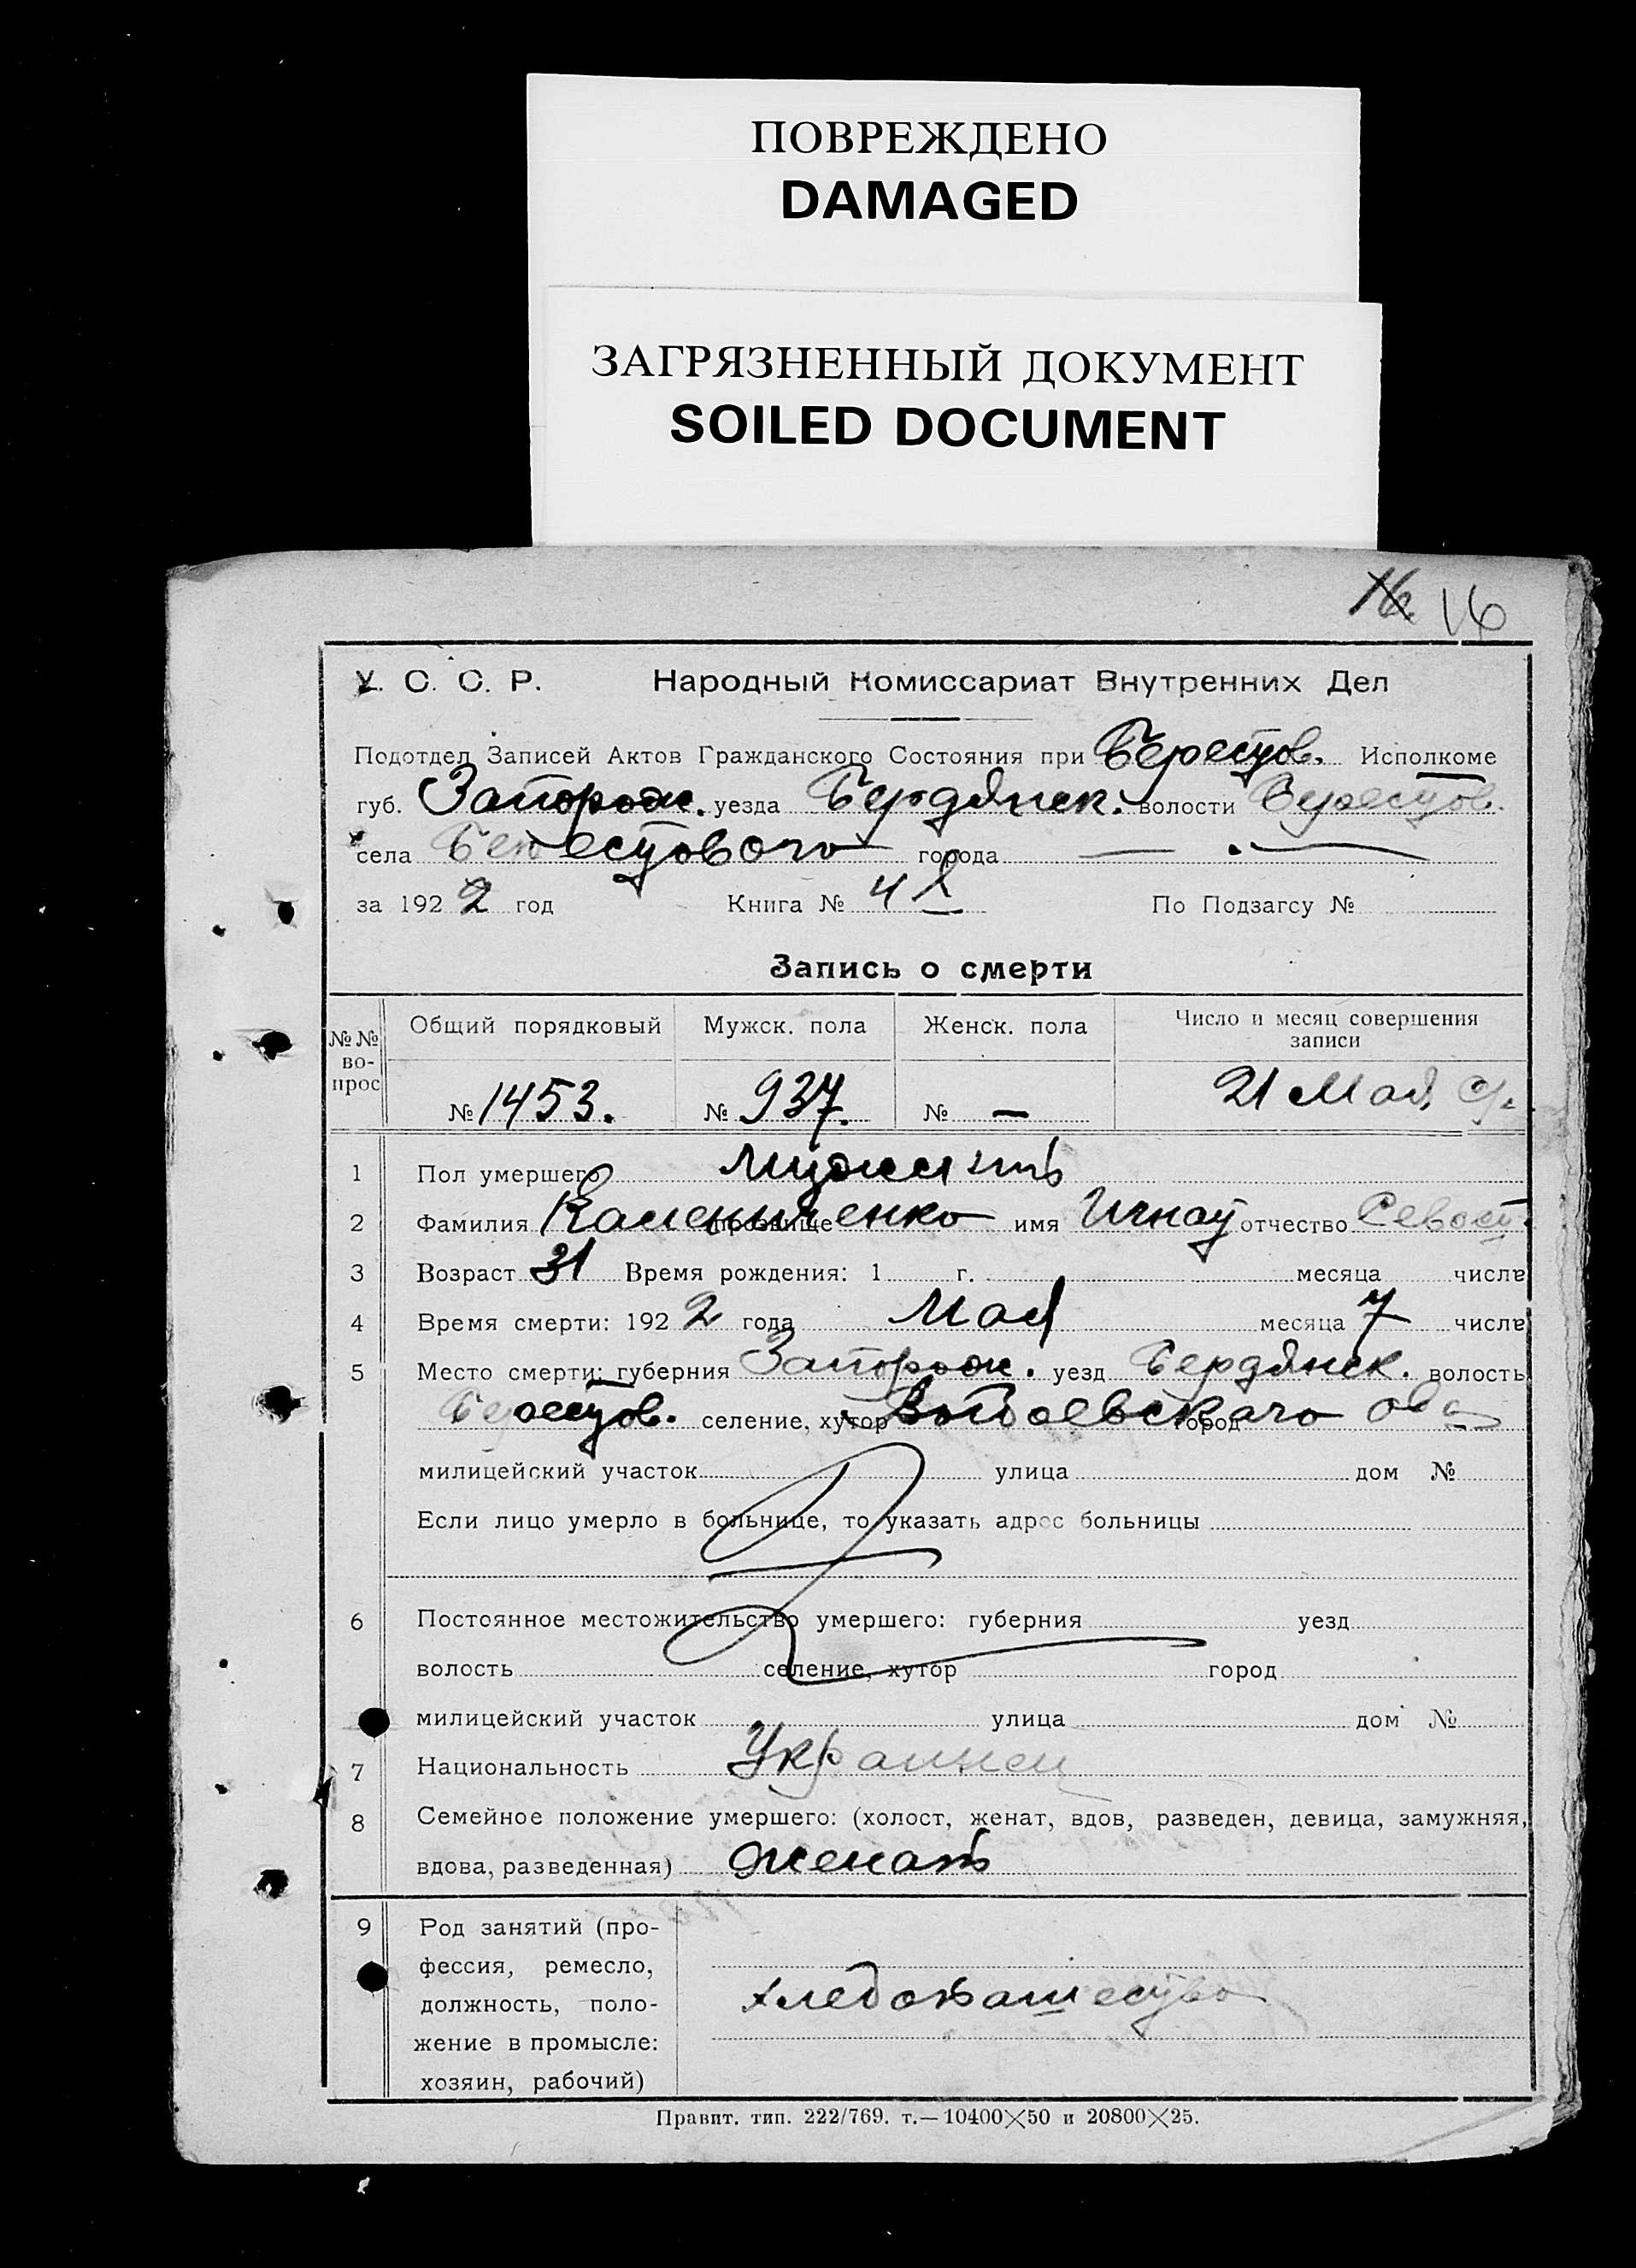 ПОВРЕЖДЕНО
DAMAGED
ЗАГРЯЗНЕННЫЙ ДОКУМЕНТ
SOILED DOCUMENT
16
У. С. С. Р. Народный Комиссариат Внутренних Дел
Подотдел Записей Актов Гражданского Состояния при Берестов. Исполкоме
губ. Запорож. уезда Бердянск. волости Берестов.
села Берестового города —
за 1922 год Книга № 4 По Подзагсу №
Запись о смерти
№№ вопрос Общий порядковый Мужск. пола Женск. пола Число и месяц совершения записи
№ 1453. № 937. № — 21 Мая с/г.
1 Пол умершего мужчинъ
2 Фамилия Каменниченко прозвище имя Игнат отчество Севаст.
3 Возраст 31 Время рождения: 1 г. месяца числа
4 Время смерти: 1922 года Мая месяца 7 числа
5 Место смерти: губерния Запорож. уезд Бердянск. волость
Берестов. селение, хутор город
милицейский участок улица дом №
Если лицо умерло в больнице, то указать адрес больницы
6 Постоянное местожительство умершего: губерния уезд
волость селение, хутор город
милицейский участок улица дом №
7 Национальность Украинец
8 Семейное положение умершего: (холост, женат, вдов, разведен, девица, замужняя,
вдова, разведенная) женатъ
9 Род занятий (про-
фессия, ремесло,
должность, поло- хлебопашество
жение в промысле:
хозяин, рабочий)
Правит. тип. 222/769. т.—10400×50 и 20800×25.